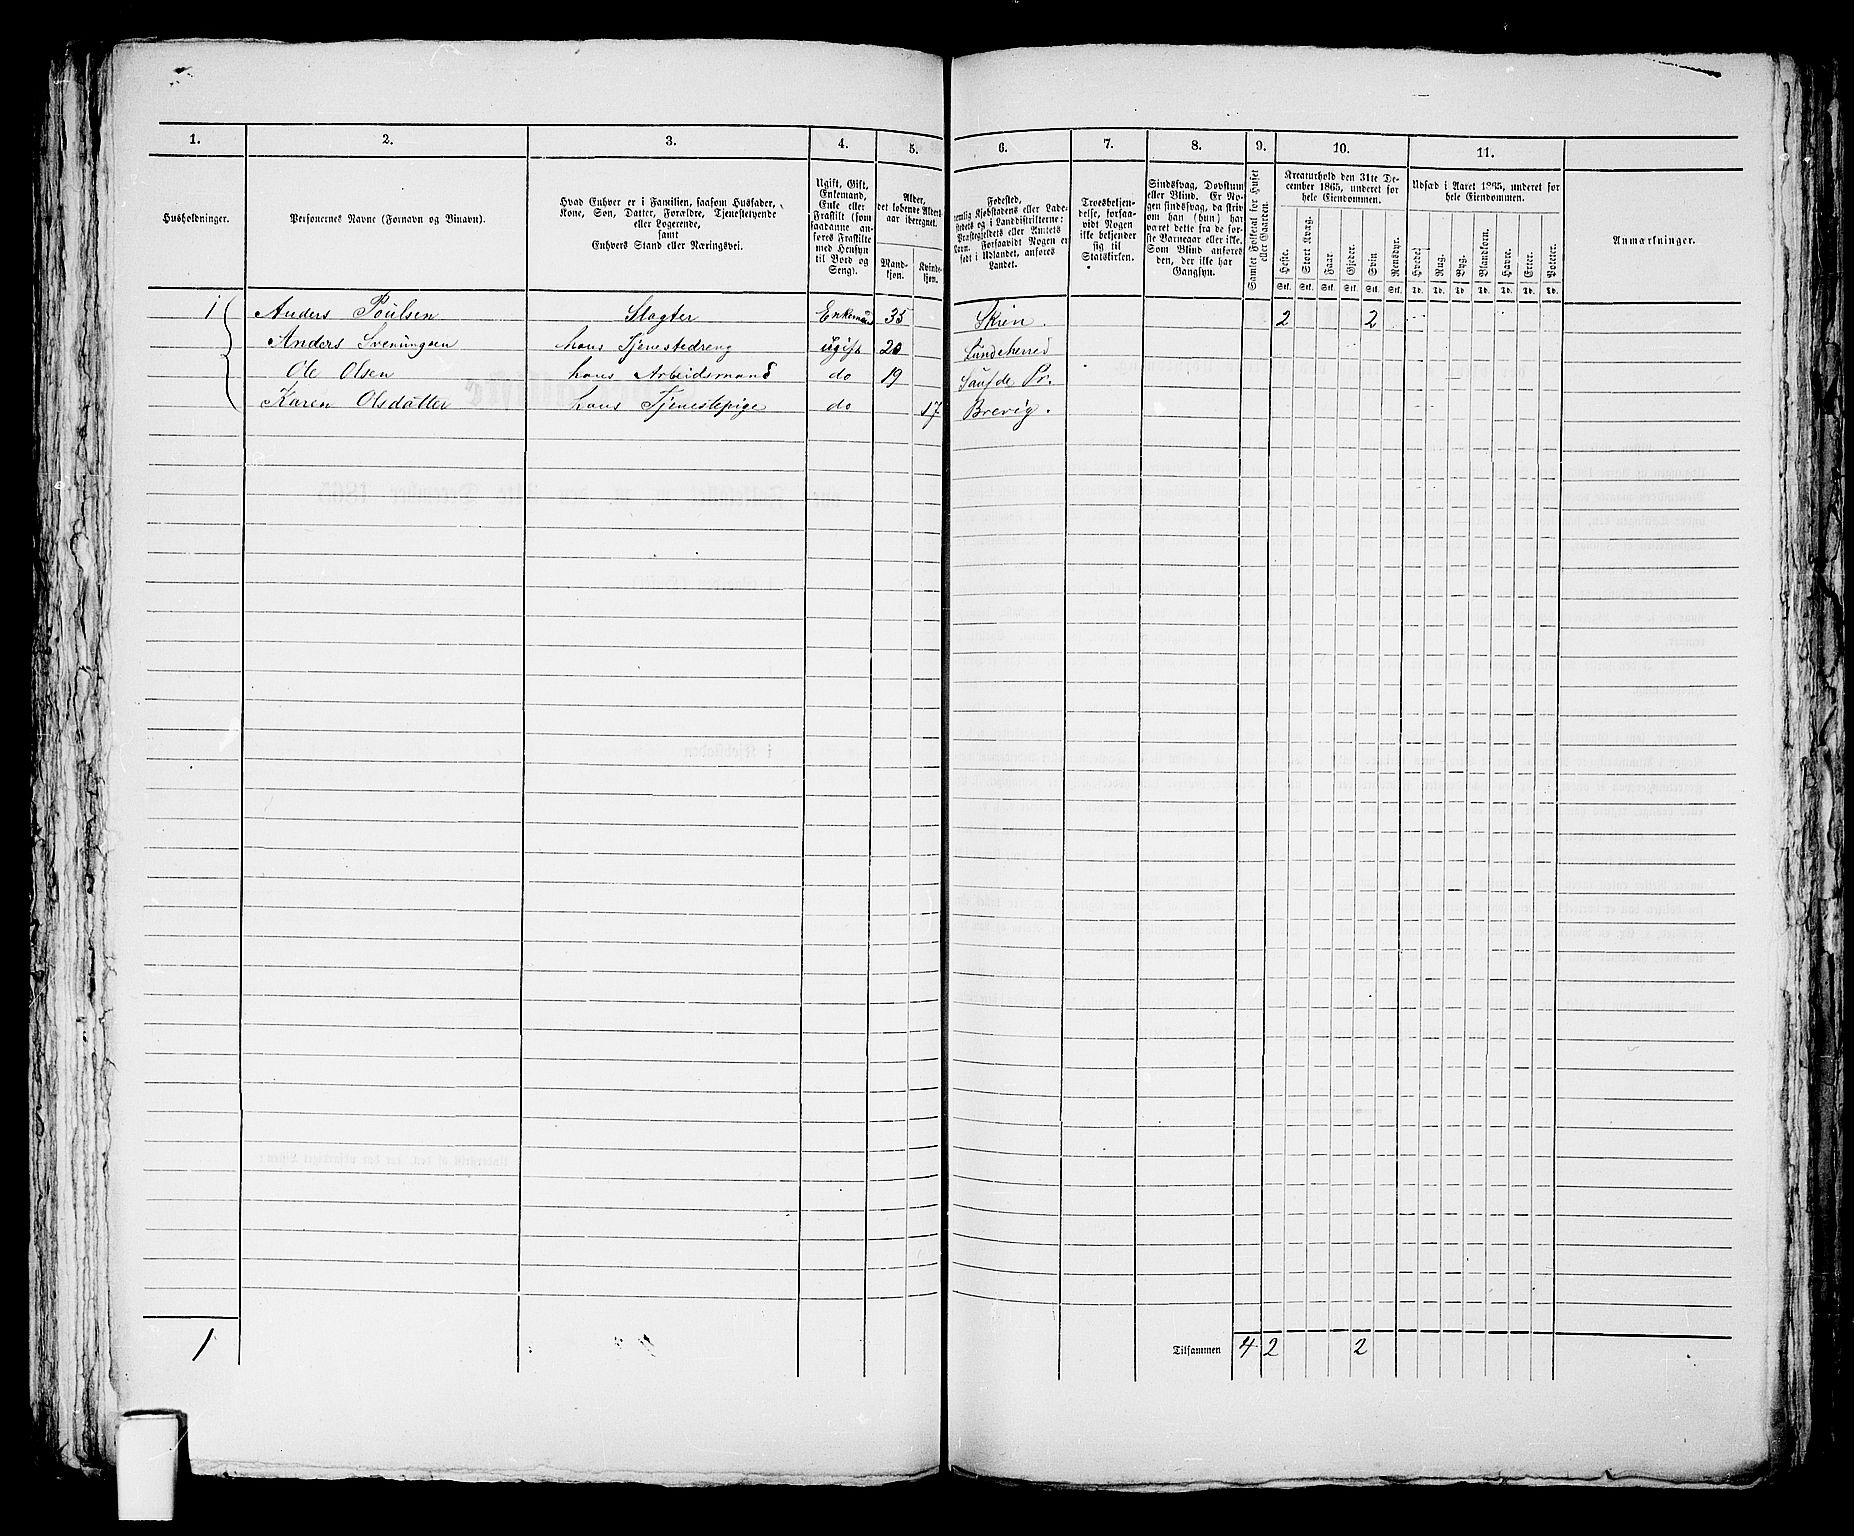 1. 2. 3. 4. 5. 6. 7. 8. 9. 10. 11.
Husholdninger.
Personernes Navne (Fornavn og Binavn).
Hvad Enhver er i Familien, saasom Husfader,
Kone, Søn, Datter, Forældre, Tjenestetyende
eller Logerende,
samt
Enhvers Stand eller Næringsvei.
Ugift, Gift,
Enkemand,
Enke eller
Fraskilt (som
saadanne an-
føres Fraskilte
med Hensyn
til Bord og
Seng).
Alder,
det løbende Alders-
aar iberegnet.
Mand-
kjøn.
Kvinde-
kjøn.
Fødested,
nemlig Kjøbstadens eller Lade-
stedets og i Landdistrikterne:
Præstegjeldets eller Amtets
Navn. Forsaavidt Nogen er
født i Udlandet, anføres
Landet.
Troesbekjen-
delse, forsaa-
vidt Nogen
ikke bekjender
sig til
Statskirken.
Sindssvag, Døvstum
eller Blind. Er No-
gen sindssvag, da skriv
om han (hun) har
været dette fra de før-
ste Barneaar eller ikke.
Som Blind anføres
den, der ikke har
Gangsyn.
Samlet Folketal for Huset
eller Gaarden.
Kreaturhold den 31te De-
cember 1865, underet for
hele Eiendommen.
Heste. Stort Kvæg. Faar. Gjeder. Svin. Rensdyr.
Stk. Stk. Stk. Stk. Stk. Stk.
Udsæd i Aaret 1865, underet for
hele Eiendommen.
Hvede. Rug. Byg. Blandkorn. Havre. Erter. Poteter.
Td. Td. Td Td. Td. Td. Td.
Anmærkninger.
1 Anders Poulsen Slagter Enkemand 35 Skien. 2 2
Anders Sveningsen hans Tjenestedreng ugift 20 Lundeherred
Ole Olsen hans Arbeidsmand do 19 Saufde Pr.
Karen Olsdatter hans Tjenestepige do 17 Brevig.
1 Tilsammen 4 2 2